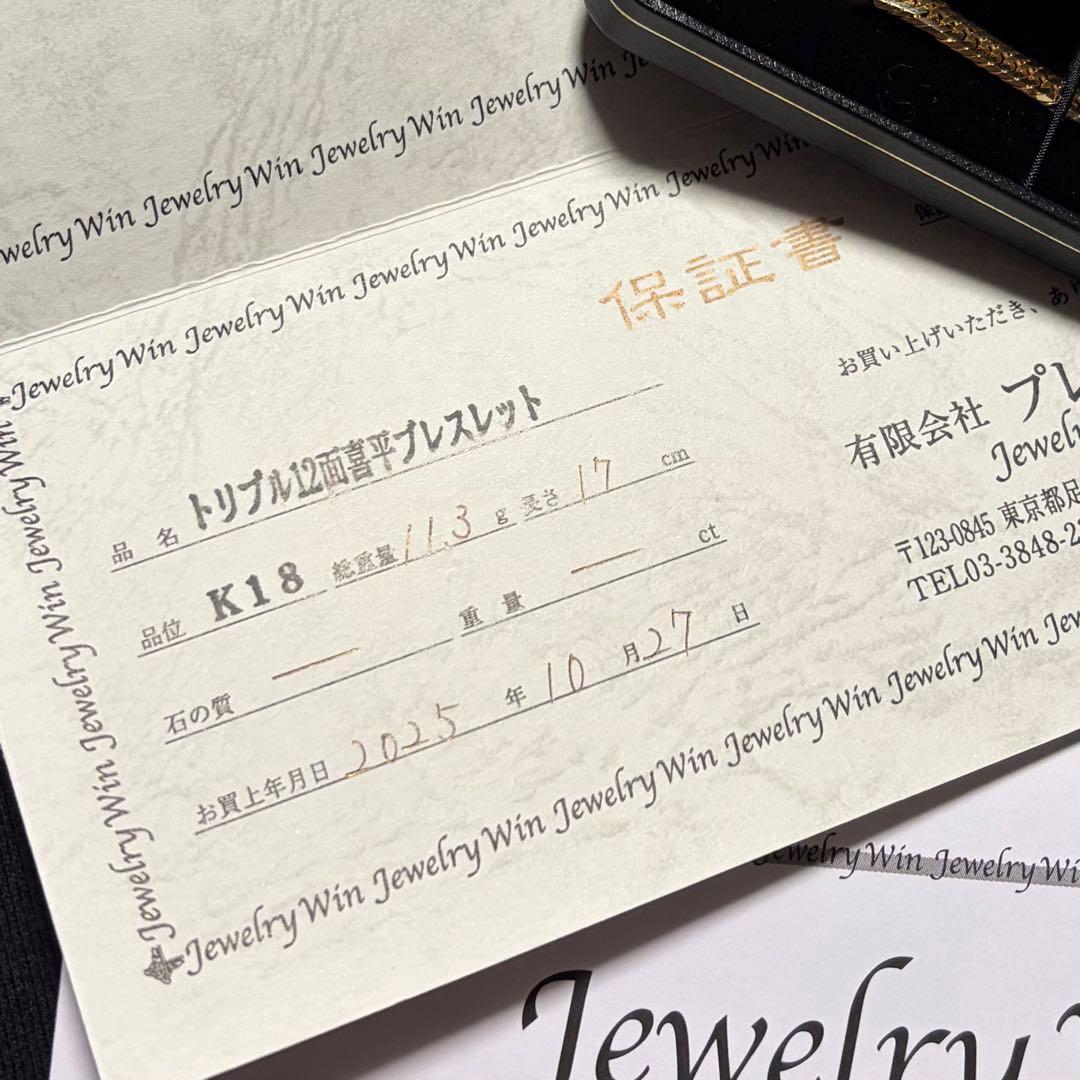 JewelryWin JewelryWin JewelryWin
JewelryWin JewelryWin JewelryWin JewelryWin JewelryWin
保証書
品名 トリプル12面喜平ブレスレット
品位 K18 総重量 11.3 g 長さ 17 cm
石の質 — 重量 — ct
お買上年月日 2025 年 10 月 27 日
お買い上げいただき、
有限会社 プレ
Jewelry
〒123-0845 東京都足
TEL03-3848-2
JewelryWin JewelryWin JewelryWin JewelryWin
JewelryWin JewelryWin JewelryWin JewelryWin JewelryWin
JewelryWin JewelryWin
Jewelry